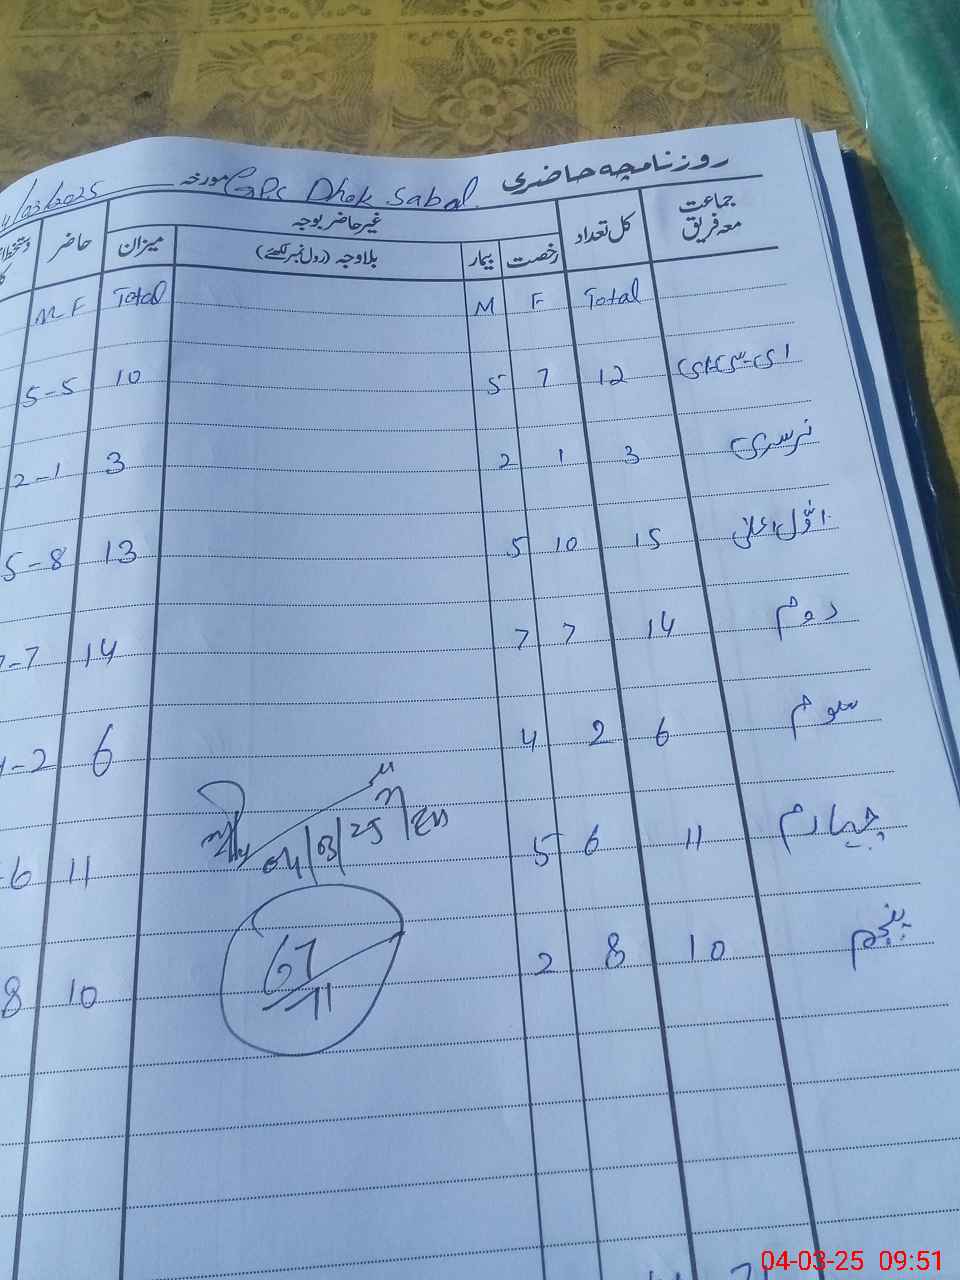 روزنامچہ حاضری GPS Dhok Sabal مورخہ 4/03/2025
جماعت معہ فریق کل تعداد غیر حاضر بوجہ حاضر
رخصت بیمار بلاوجہ (رول نمبر لکھئے) میزان
Total F M Total M F
ای سی ای 12 7 5 10 5-5
نرسری 3 1 2 3 2-1
اوّل اعلیٰ 15 10 5 13 5-8
دوم 14 7 7 14 7-7
سوم 6 2 4 6 4-2
چہارم 11 6 5 11 -6
04/03/25
پنجم 10 8 2 10 8
67/71
04-03-25 09:51